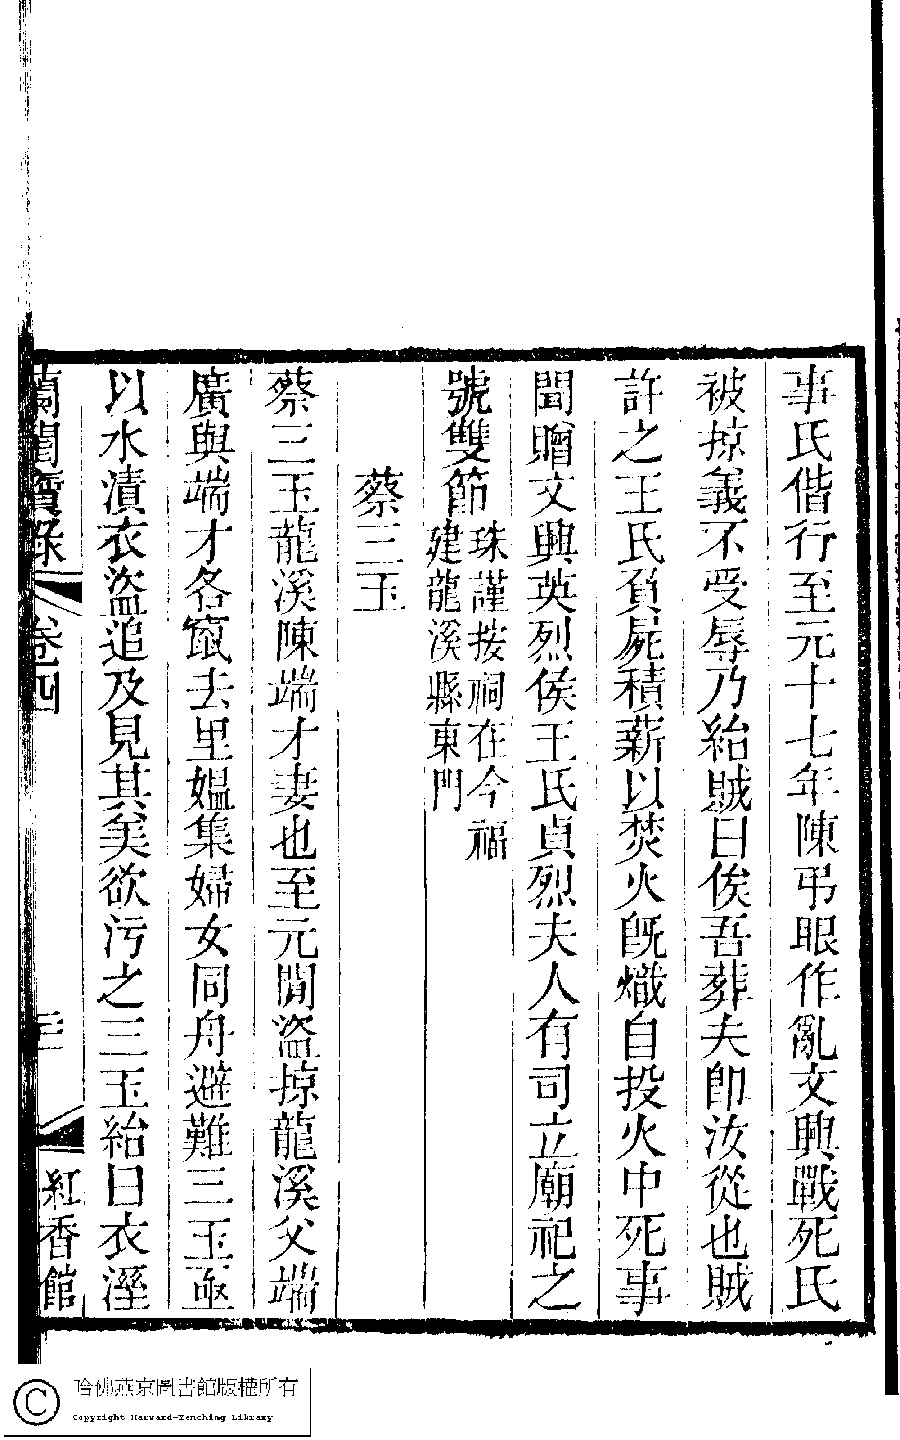 事氏偕行至元十七年陳弔眼作亂文興戰死氏
被掠義不受辱乃紿賊曰俟吾葬夫卽汝從也賊
許之王氏負屍積薪以焚火旣熾自投火中死事
聞贈文興英烈侯王氏貞烈夫人有司立廟祀之
號雙節珠謹按祠在今福
建龍溪縣東門
蔡三玉
蔡三玉龍溪陳端才妻也至元閒盜掠龍溪父端
廣與端才各竄去里媼集婦女同舟避難三玉亟
以水漬衣盜追及見其美欲污之三玉紿曰衣溼
蘭閨寶錄 卷四 三 紅香館
哈佛燕京圖書館版權所有
Copyright Harvard-Yenching Library